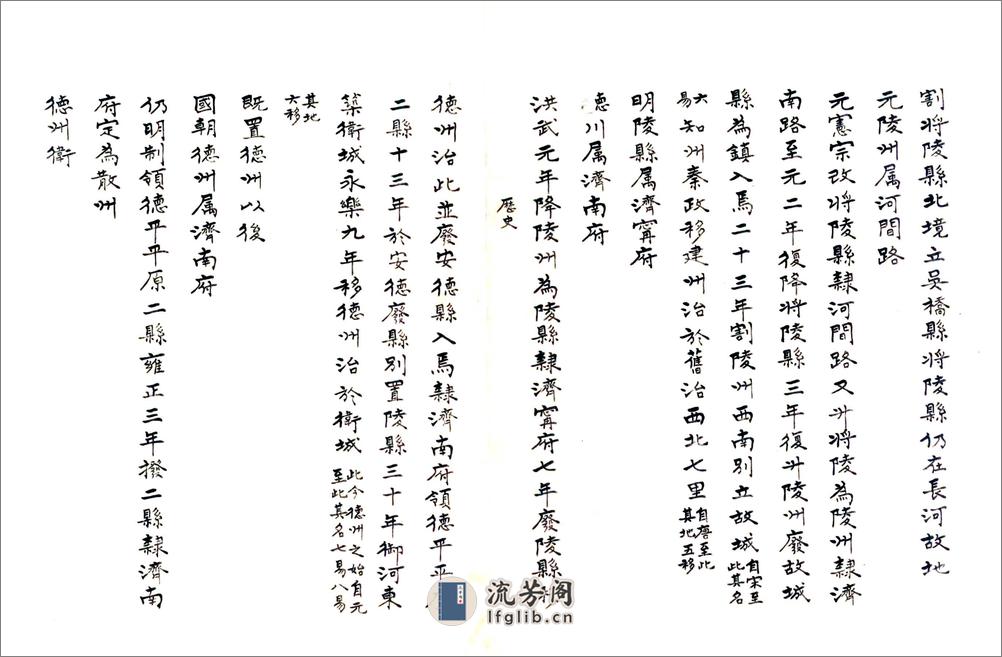 割将陵縣北境立吳橋縣将陵縣仍在長河故地
元陵州属河間路
元憲宗改将陵縣隸河間路又升将陵為陵州隸濟
南路至元二年復降将陵縣三年復升陵州廢故城
縣為鎮入焉二十三年割陵州西南別立故城自宋至此其名
六易知州秦政移建州治於舊治西北七里自唐至此其地五移
明陵縣属濟寧府
德州属濟南府
歷史
洪武元年降陵州為陵縣隸濟寧府七年廢陵縣
德州治此並廢安德縣入焉隸濟南府領德平平
二縣十三年於安德廢縣別置陵縣三十年御河東
築衛城永樂九年移德州治於衛城此今德州之始自元至此其名七易八易
其地六移
既置德州以後
國朝德州属濟南府
仍明制領德平平原二縣雍正三年撥二縣隸濟南
府定為散州
德州衛
流芳阁
lfglib.cn